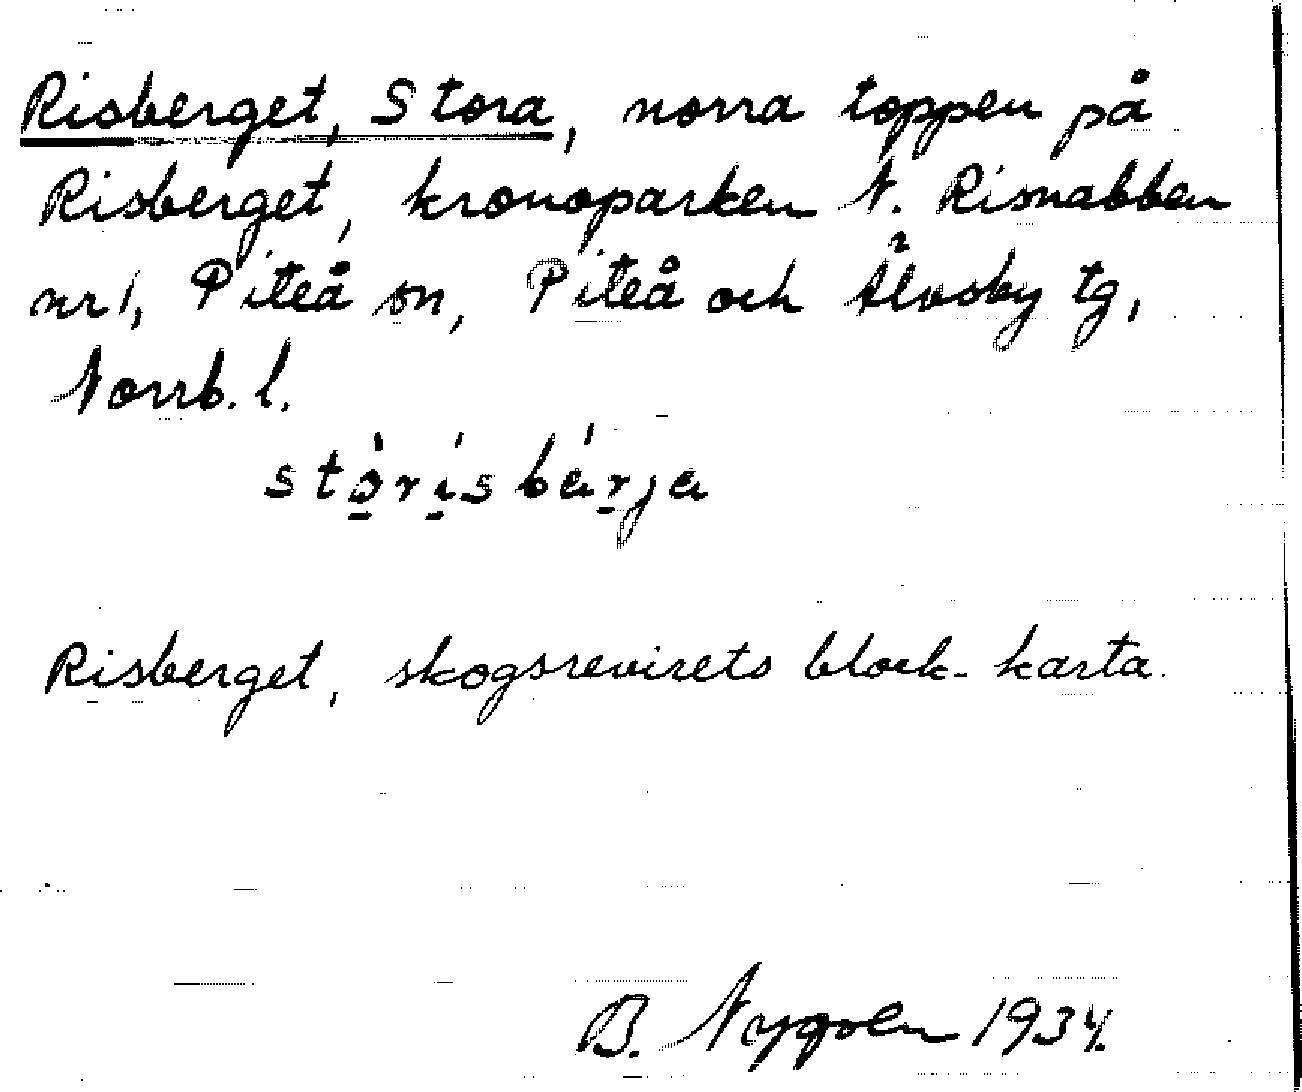 Risberget, Stora, norra toppen på
Risberget, kronoparken N. Risnabben
nr 1, Piteå sn, Piteå och Älvsby tg,
Norrb. l.
stórisbärja
Risberget, skogsrevirets block-karta.
B. 1934.